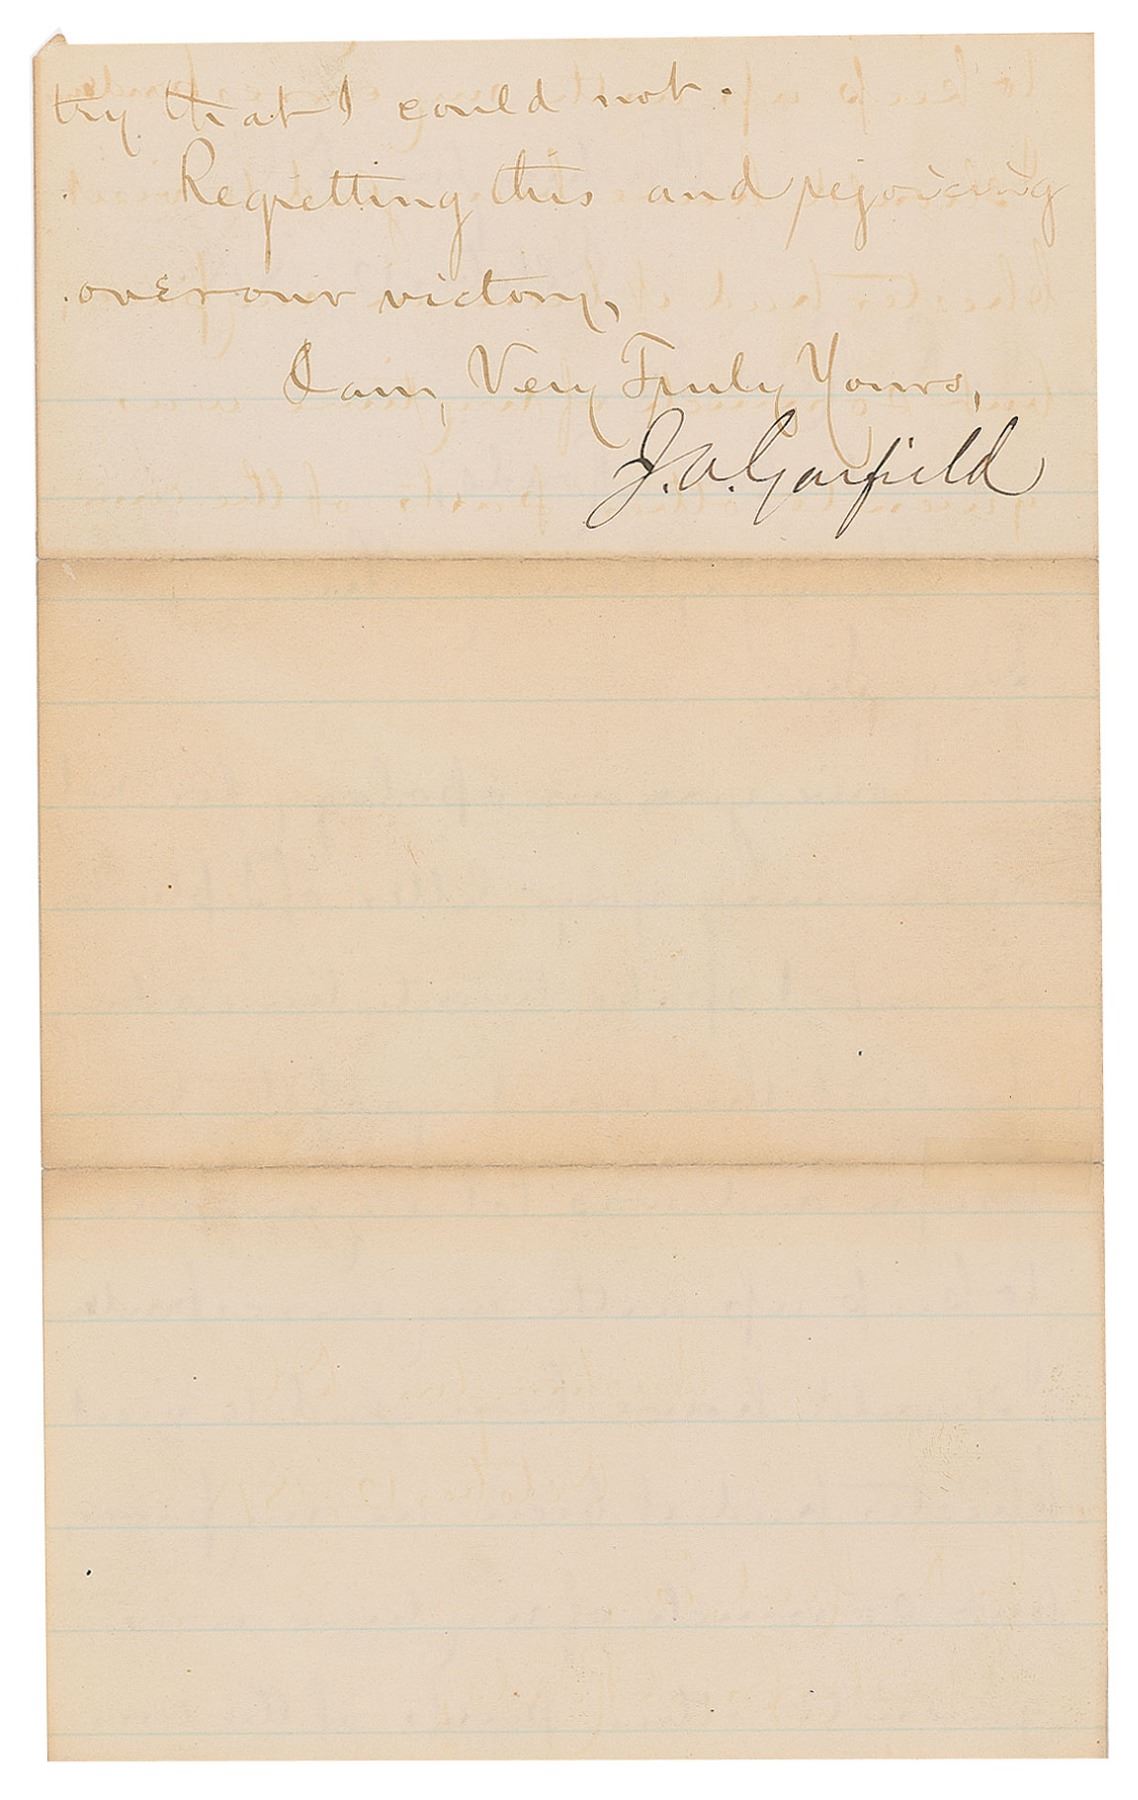 try that I could not.
Regretting this and rejoicing
over our victory,
I am, Very Truly Yours,
J. A. Garfield